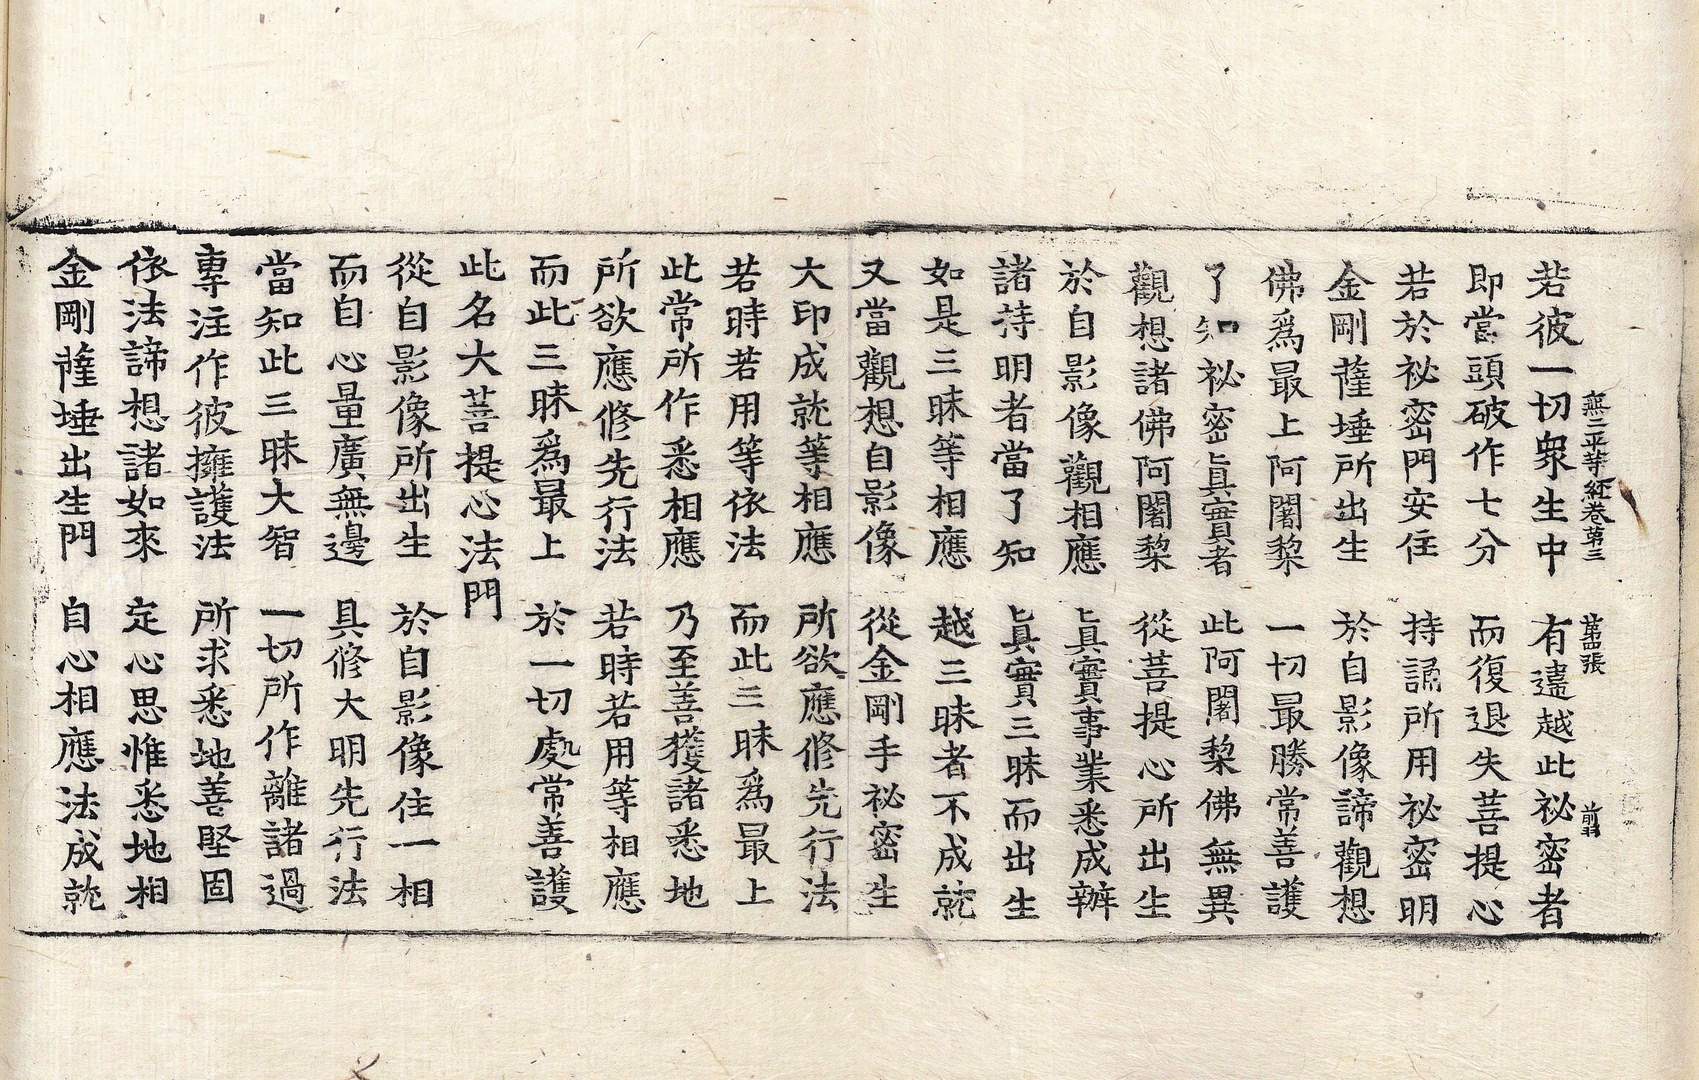 無二平等経卷第三 第昌張 前羽
若彼一切衆生中 有違越此祕密者
即當頭破作七分 而復退失菩提心
若於祕密門安住 持誦所用祕密明
金剛薩埵所出生 於自影像諦觀想
佛爲最上阿闍梨 一切最勝常善護
了知祕密眞實者 此阿闍梨佛無異
觀想諸佛阿闍梨 從菩提心所出生
於自影像觀相應 眞實事業悉成辦
諸持明者當了知 眞實三昧而出生
如是三昧等相應 越三昧者不成就
又當觀想自影像 從金剛手祕密生
大印成就等相應 所欲應修先行法
若時若用等依法 而此三昧爲最上
此常所作悉相應 乃至善獲諸悉地
所欲應修先行法 若時若用等相應
而此三昧爲最上 於一切處常善護
此名大菩提心法門
從自影像所出生 於自影像住一相
而自心量廣無邊 具修大明先行法
當知此三昧大智 一切所作離諸過
專注作彼擁護法 所求悉地善堅固
依法諦想諸如來 定心思惟悉地相
金剛薩埵出生門 自心相應法成就